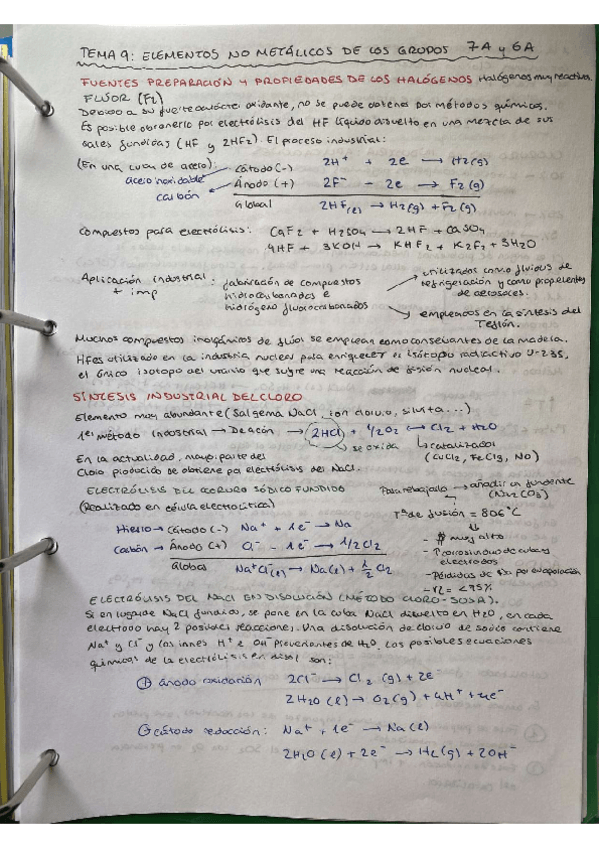 TEMA 9: ELEMENTOS NO METÁLICOS DE LOS GRUPOS 7A y 6A
FUENTES PREPARACIÓN Y PROPIEDADES DE LOS HALÓGENOS Halógenos muy reactivos
FLÚOR (F₂)
Debido a su fuerte carácter oxidante, no se puede obtener por métodos químicos.
Es posible obtenerlo por electrólisis del HF líquido disuelto en una mezcla de sus
sales fundidas (HF y 2HF₂). El proceso industrial:
(En una cuba de acero): Cátodo (-) 2H⁺ + 2e ⟶ H₂(g)
acero inoxidable Ánodo (+) 2F⁻ - 2e ⟶ F₂(g)
carbón
Global 2HF(l) ⟶ H₂(g) + F₂(g)
Compuestos para electrólisis: CaF₂ + H₂SO₄ ⟶ 2HF + CaSO₄
4HF + 3KOH ⟶ KHF₂ + K₂F₂ + 3H₂O
Aplicación industrial: fabricación de compuestos utilizados como fluidos de
+ imp hidrocarbonados e refrigeración y como propelentes
hidrógeno fluorocarbonados de aerosoles.
empleados en la síntesis del
Teflón.
Muchos compuestos inorgánicos de flúor se emplean como conservantes de la madera.
HF es utilizado en la industria nuclear para enriquecer el isótopo radiactivo U-235,
el único isótopo del uranio que sufre una reacción de fisión nuclear.
SÍNTESIS INDUSTRIAL DEL CLORO
Elemento muy abundante (Sal gema NaCl, ion cloruro, silvita...)
1er método industrial → Deacon → 2HCl + 1/2O₂ ⟶ Cl₂ + H₂O
se oxida catalizador
(CuCl₂, FeCl₃, NO)
En la actualidad, mayor parte del
cloro producido se obtiene por electrólisis del NaCl.
ELECTRÓLISIS DEL CLORURO SÓDICO FUNDIDO Para rebajarlo → añadir un fundente
(Na₂CO₃)
(Realizado en célula electrolítica)
Tª de fusión = 806°C
Hierro → Cátodo (-) Na⁺ + 1e⁻ ⟶ Na
- $ muy alto
Carbón → Ánodo (+) Cl⁻ - 1e⁻ ⟶ 1/2Cl₂
- ↑ corrosión de cuba y
electrodos
Global Na⁺Cl⁻(l) ⟶ Na(l) + 1/2 Cl₂
- Pérdidas de por evaporación
- <75%
ELECTRÓLISIS DEL NaCl EN DISOLUCIÓN (MÉTODO CLORO-SOSA).
Si en lugar de NaCl fundido, se pone en la cuba NaCl disuelto en H₂O, en cada
electrodo hay 2 posibles reacciones. Una disolución de cloruro de sodio contiene
Na⁺ y Cl⁻ y los iones H⁺ e OH⁻ provenientes de H₂O. Los posibles ecuaciones
químicas de la electrólisis en disol son:
⊕ ánodo oxidación 2Cl⁻ ⟶ Cl₂ (g) + 2e⁻
2H₂O (l) ⟶ O₂(g) + 4H⁺ + 4e⁻
⊖ cátodo reducción: Na⁺ + 1e⁻ ⟶ Na(l)
2H₂O (l) + 2e⁻ ⟶ H₂(g) + 2OH⁻